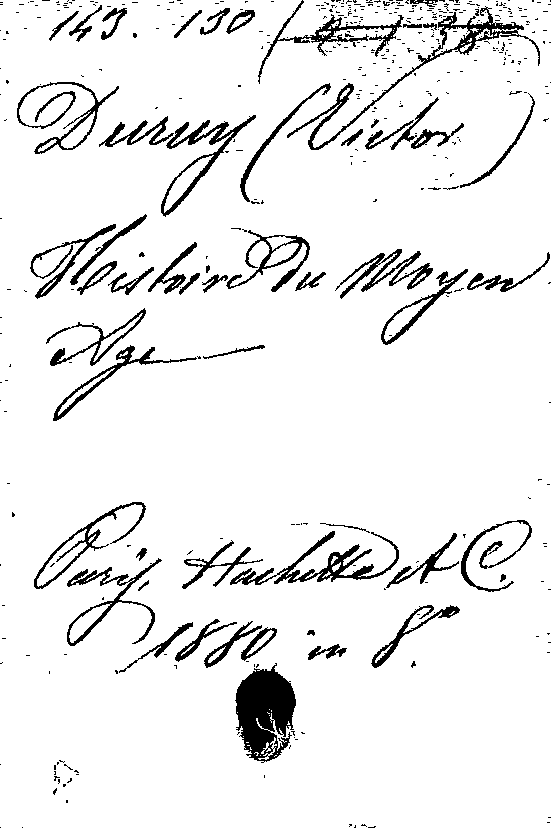 143. 130
Duruy (Victor)
Histoire du Moyen
Age
Paris, Hachette et C.
1880 in 8°.